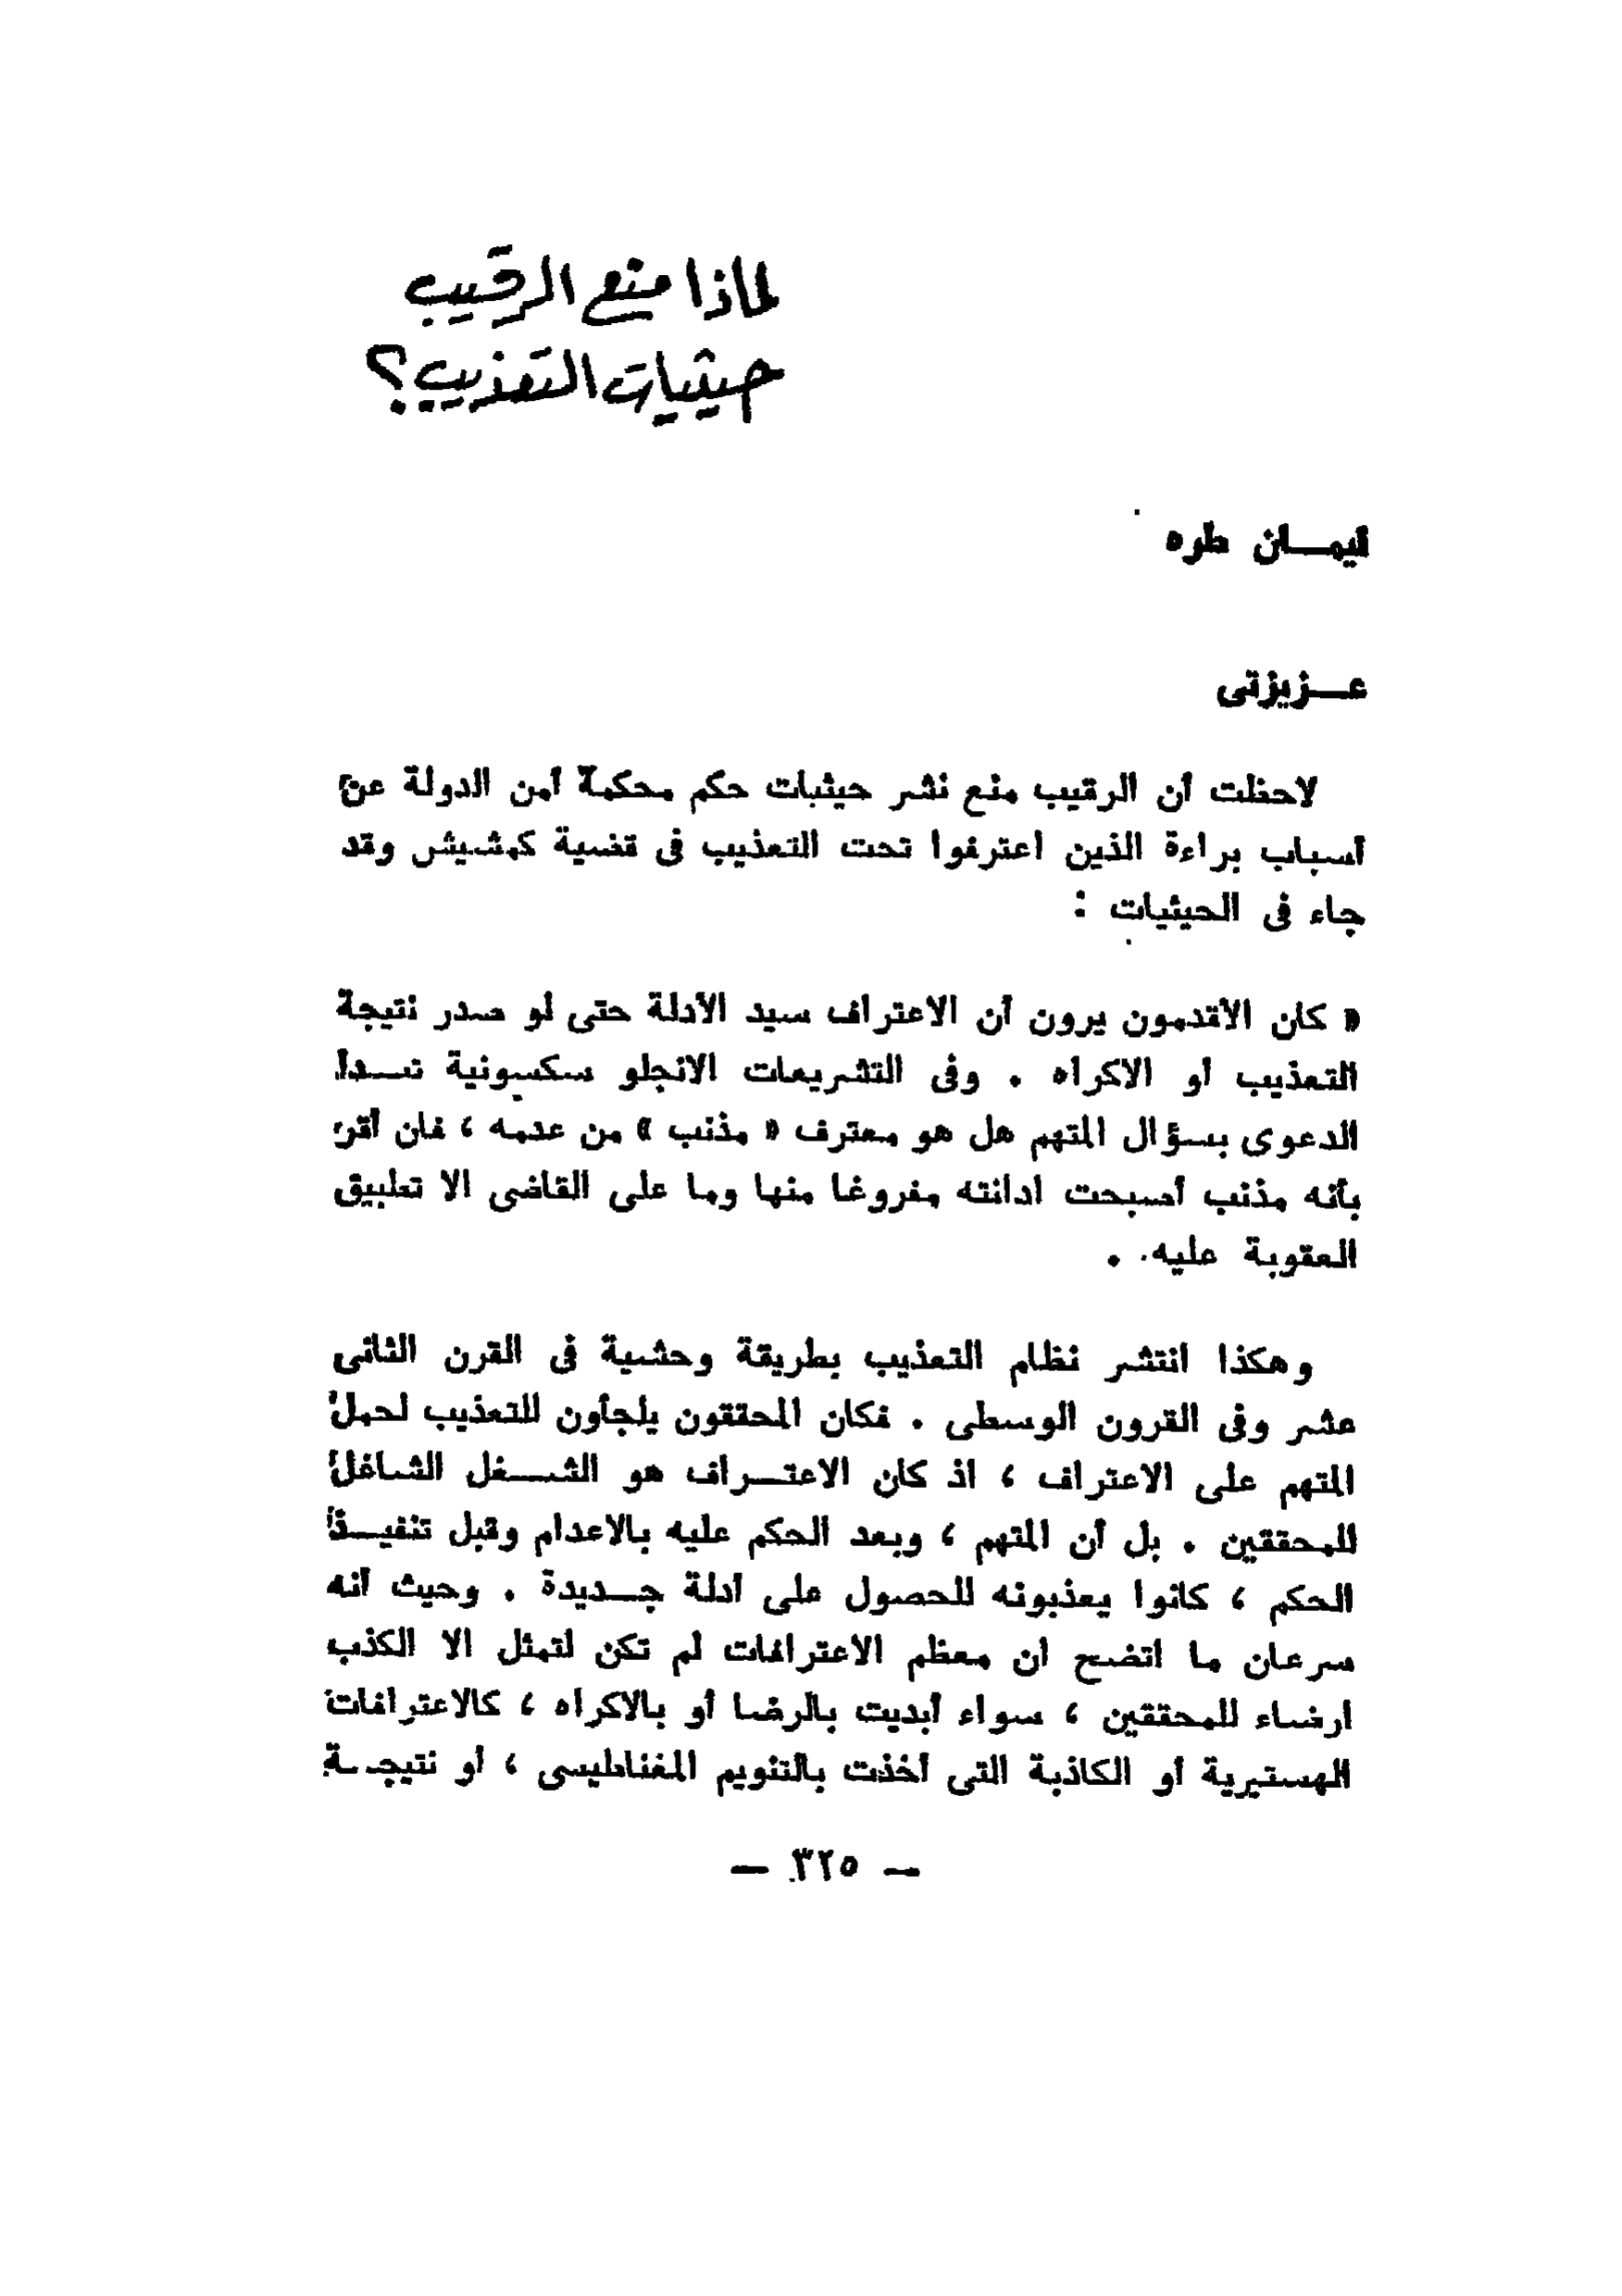 لماذا منع الرقيب
حيثيات التعذيب؟
ليمـــان طره
عـــزيزتى
لاحظت أن الرقيب منع نشر حيثيات حكم محكمة أمن الدولة عن
أسباب براءة الذين اعترفوا تحت التعذيب فى قضية كمشيش وقد
جاء فى الحيثيات :
« كان الأقدمون يرون أن الاعتراف سيد الأدلة حتى لو صدر نتيجة
التعذيب أو الاكراه . وفى التشريعات الانجلو سكسونية تبـــدأ
الدعوى بسؤال المتهم هل هو معترف « مذنب » من عدمه ، فان أقر
بأنه مذنب أصبحت ادانته مفروغا منها وما على القاضى الا تطبيق
العقوبة عليه .
وهكذا انتشر نظام التعذيب بطريقة وحشية فى القرن الثانى
عشر وفى القرون الوسطى . فكان المحققون يلجأون للتعذيب لحمل
المتهم على الاعتراف ، اذ كان الاعتـــراف هو الشـــغل الشاغل
للمحققين . بل أن المتهم ، وبعد الحكم عليه بالاعدام وقبل تنفيـــذ
الحكم ، كانوا يعذبونه للحصول على أدلة جـــديدة . وحيث أنه
سرعان ما اتضح ان معظم الاعترافات لم تكن لتمثل الا الكذب
ارضاء للمحققين ، سواء أبديت بالرضا أو بالاكراه ، كالاعترافات
الهستيرية أو الكاذبة التى أخذت بالتنويم المغناطيسى ، أو نتيجـة
— ٣٢٥ —